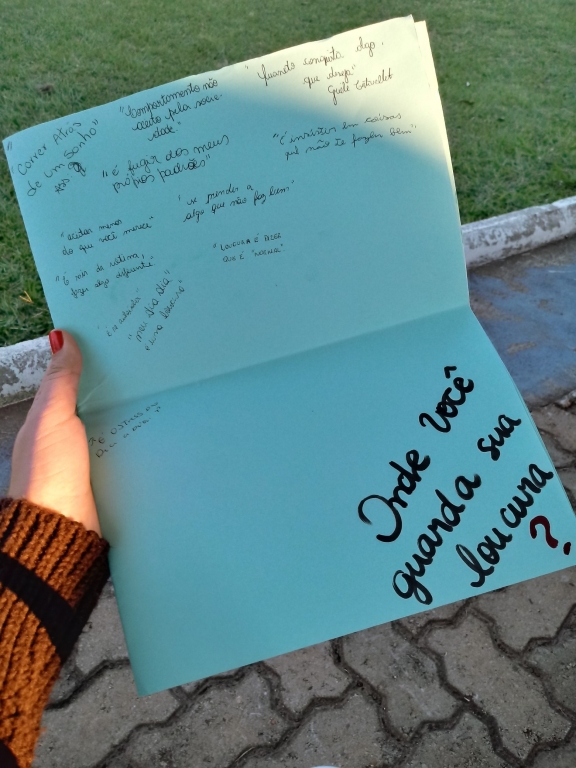 "Correr Atrás
de um sonho"
"Comportamento não
aceito pela socie-
dade"
"Quando conquista algo
que deseja"
"é fugir dos meus
próprios padrões"
"É insistir em coisas
que não te fazem bem"
"aceitar menos
do que você merece"
"se prender a
algo que não faz bem"
"É sair da rotina,
fazer algo diferente"
"LOUCURA É FAZER
QUE É "NORMAL"
"meu dia dia
é uma loucura"
Onde você
guarda sua
loucura
?